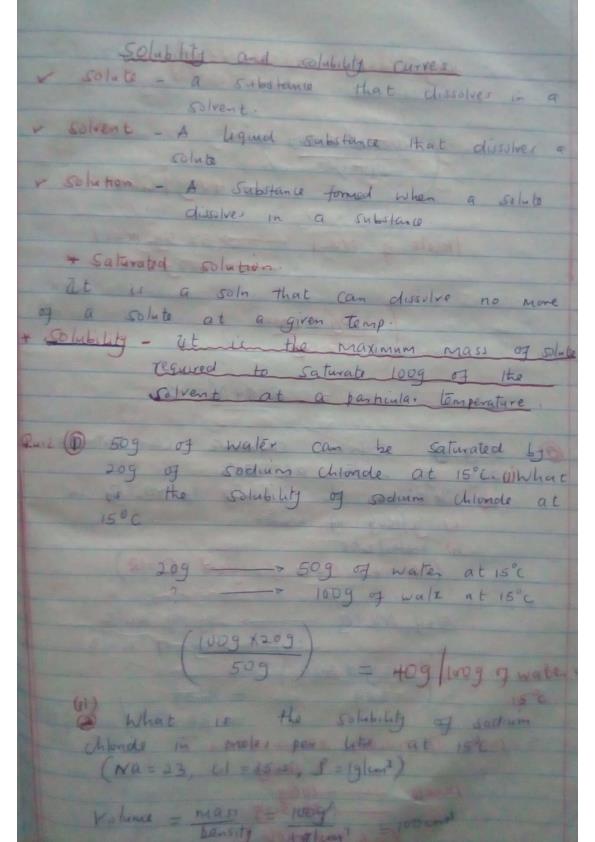 Solubility and solubility curves
✓ Solute - a substance that dissolves in a
solvent.
✓ Solvent - A liquid substance that dissolves a
solute
✓ Solution - A substance formed when a solute
dissolves in a substance
* Saturated solution.
It is a soln that can dissolve no more
of a solute at a given Temp.
* Solubility - it is the maximum mass of solute
required to saturate 100g of the
solvent at a particular temperature.
Quiz ① 50g of water can be saturated by
20g of sodium chloride at 15°C. (i) What
is the solubility of sodium chloride at
15°C
20g → 50g of water at 15°C
? → 100g of water at 15°C
(100g × 20g
50g) = 40g/100g of water
15°C
(ii)
What is the solubility of sodium
chloride in moles per litre at 15°C
(Na = 23, Cl = ρ = 1g/cm³)
Volume = mass = 100g
Density 1g/cm³ = 100cm³